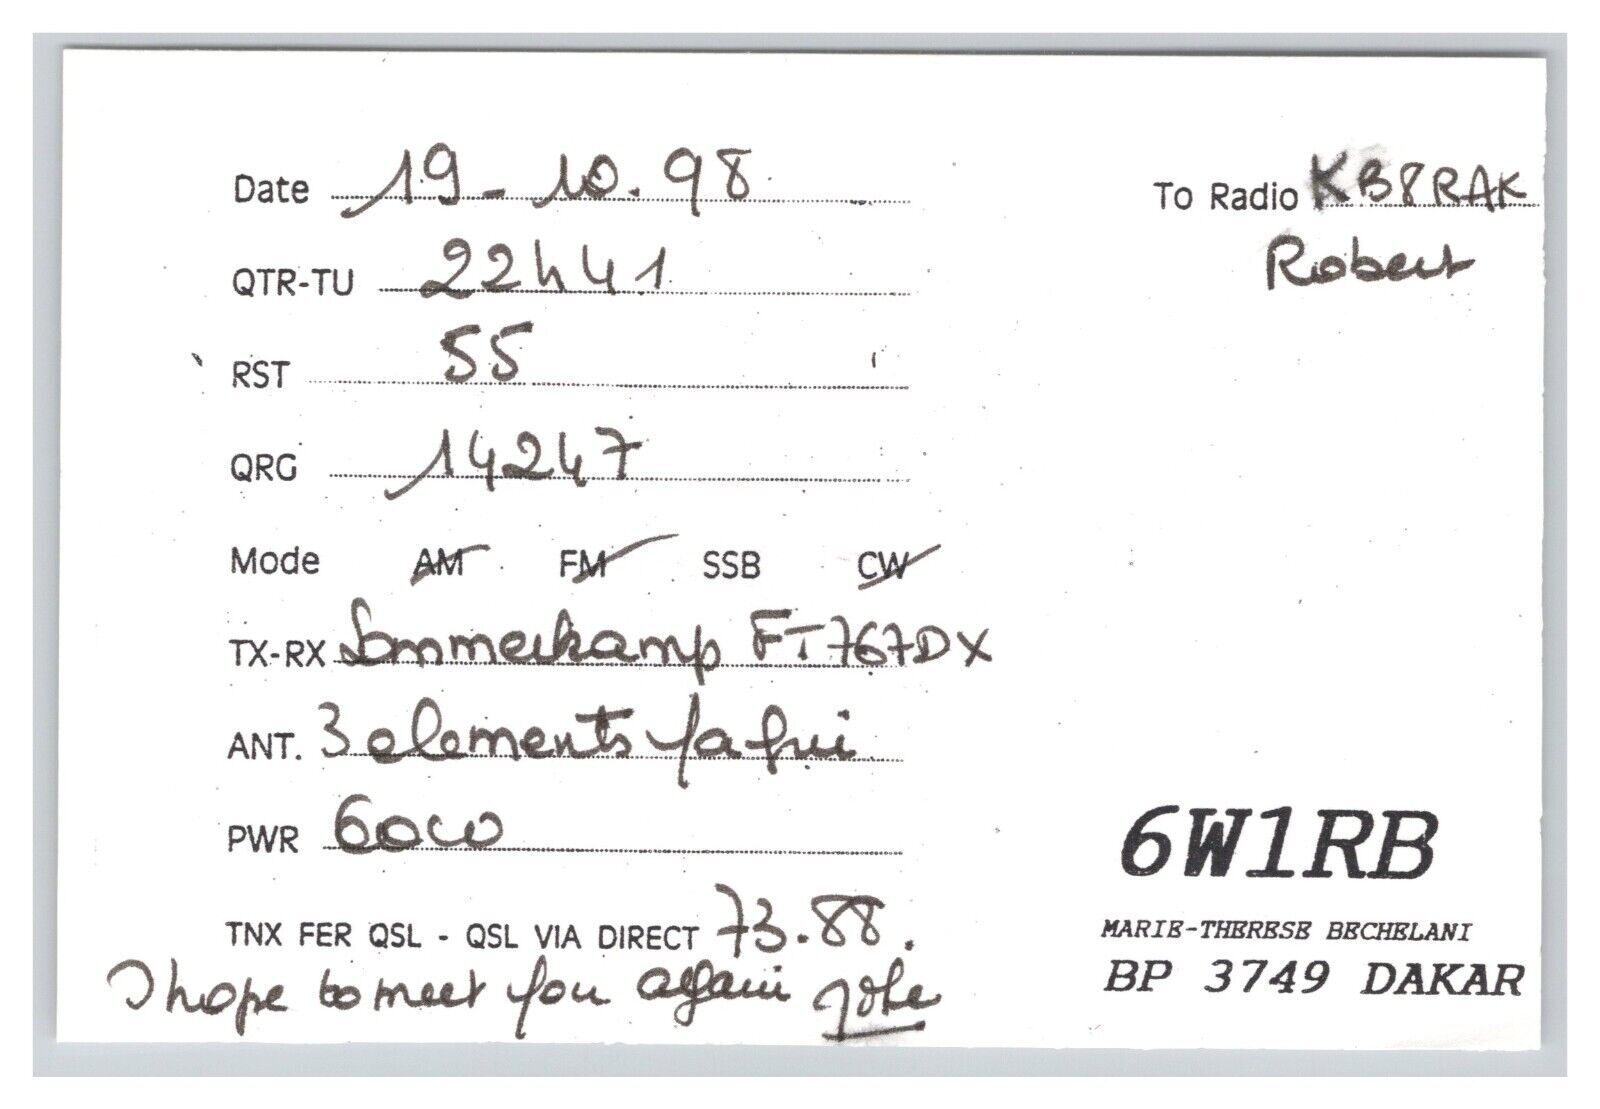 Date 19-10.98
To Radio KB8RAK
Robert
QTR-TU 22h41
RST 55
QRG 14247
Mode AM FM SSB CW
TX-RX Sommerkamp FT767DX
ANT. 3 elements yagui
PWR 60W
TNX FER QSL - QSL VIA DIRECT 73.88.
I hope to meet you again
6W1RB
MARIE-THERESE BECHELANI
BP 3749 DAKAR